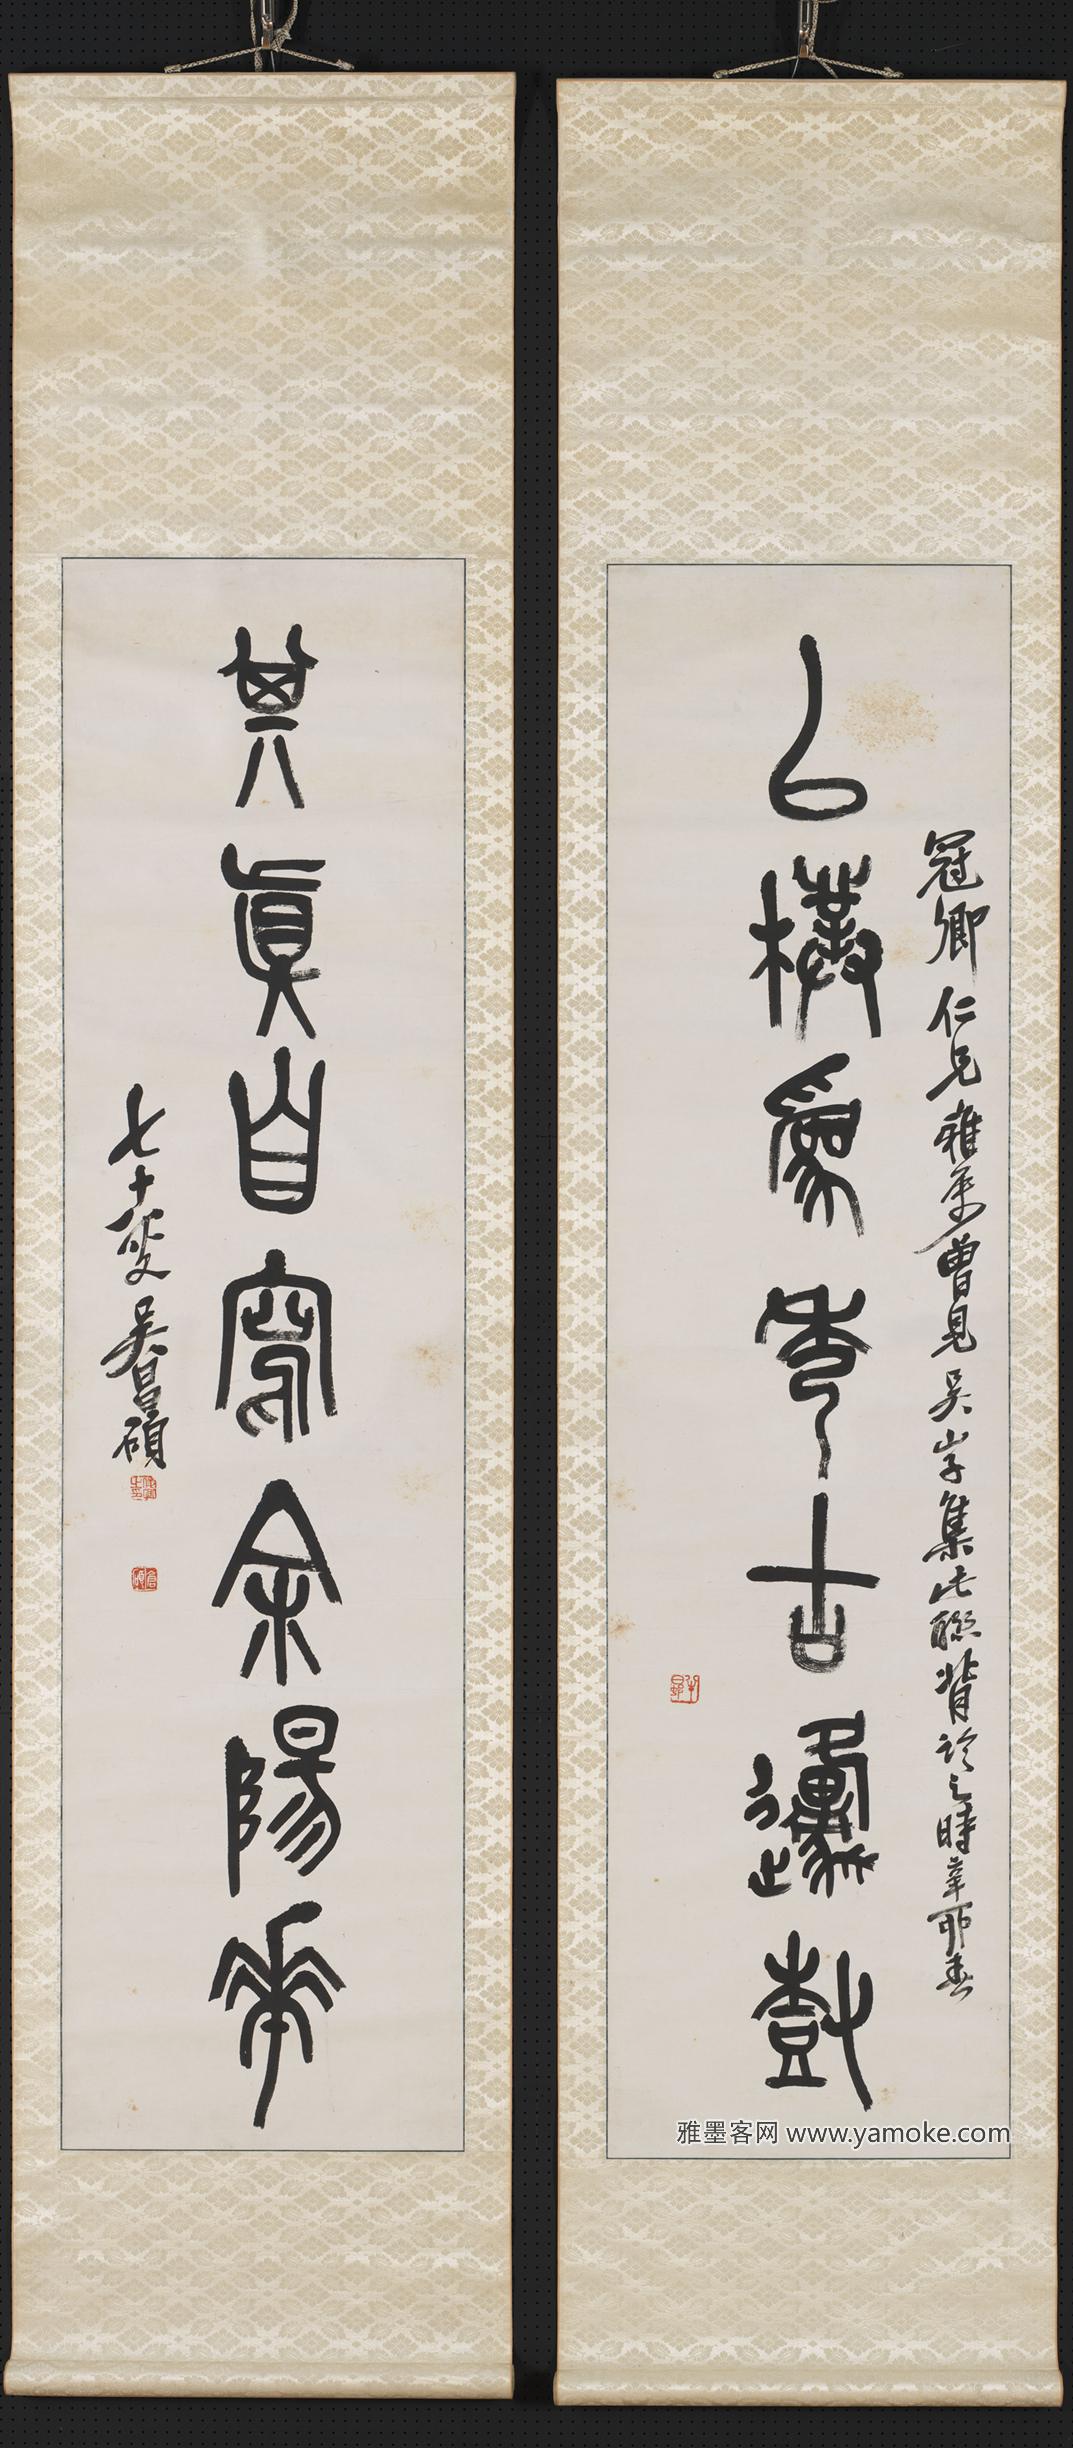 以樸為秀古邍尌
冠卿仁兄雅屬曾見吳山子集此聯背之時辛酉春
其眞自寫余陽華
七十八叟吳昌碩
雅墨客网 www.yamoke.com